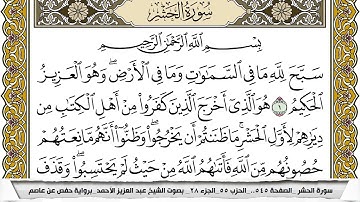 سُورَةُ الحَشْرِ
بِسْمِ ٱللَّهِ ٱلرَّحْمَٰنِ ٱلرَّحِيمِ
سَبَّحَ لِلَّهِ مَا فِي ٱلسَّمَٰوَٰتِ وَمَا فِي ٱلْأَرْضِۖ وَهُوَ ٱلْعَزِيزُ
ٱلْحَكِيمُ ١ هُوَ ٱلَّذِيٓ أَخْرَجَ ٱلَّذِينَ كَفَرُوا۟ مِنْ أَهْلِ ٱلْكِتَٰبِ مِن
دِيَٰرِهِمْ لِأَوَّلِ ٱلْحَشْرِۚ مَا ظَنَنتُمْ أَن يَخْرُجُوا۟ۖ وَظَنُّوٓا۟ أَنَّهُم مَّانِعَتُهُمْ
حُصُونُهُم مِّنَ ٱللَّهِ فَأَتَىٰهُمُ ٱللَّهُ مِنْ حَيْثُ لَمْ يَحْتَسِبُوا۟ۖ وَقَذَفَ
سورة الحشر _الصفحة ٥٤٥_ الحزب ٥٥_الجزء ٢٨_ بصوت الشيخ عبد العزيز الاحمد_برواية حفص عن عاصم